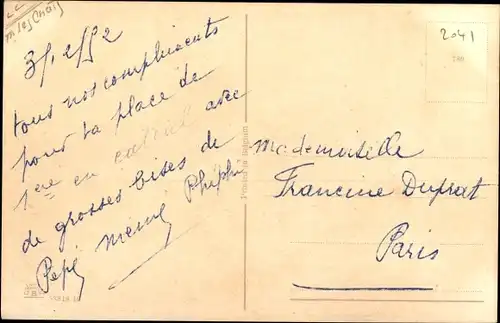 3/12/52
tous nos compliments
pour ta place de
1ere en calcul avec
de grosses bises de
Pépé Phiphi
Mademoiselle
Francine Duprat
Paris
2041
Printed in Belgium